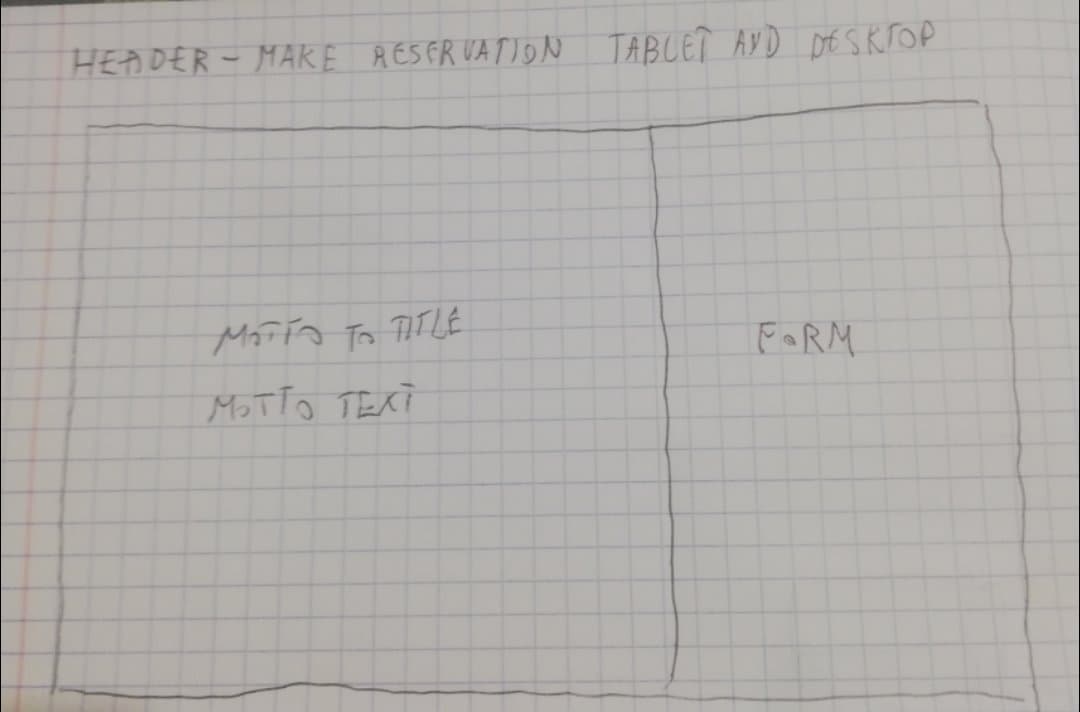 HEADER - MAKE RESERVATION TABLET AND DESKTOP
MOTTO TO TITLE
MOTTO TEXT
FORM